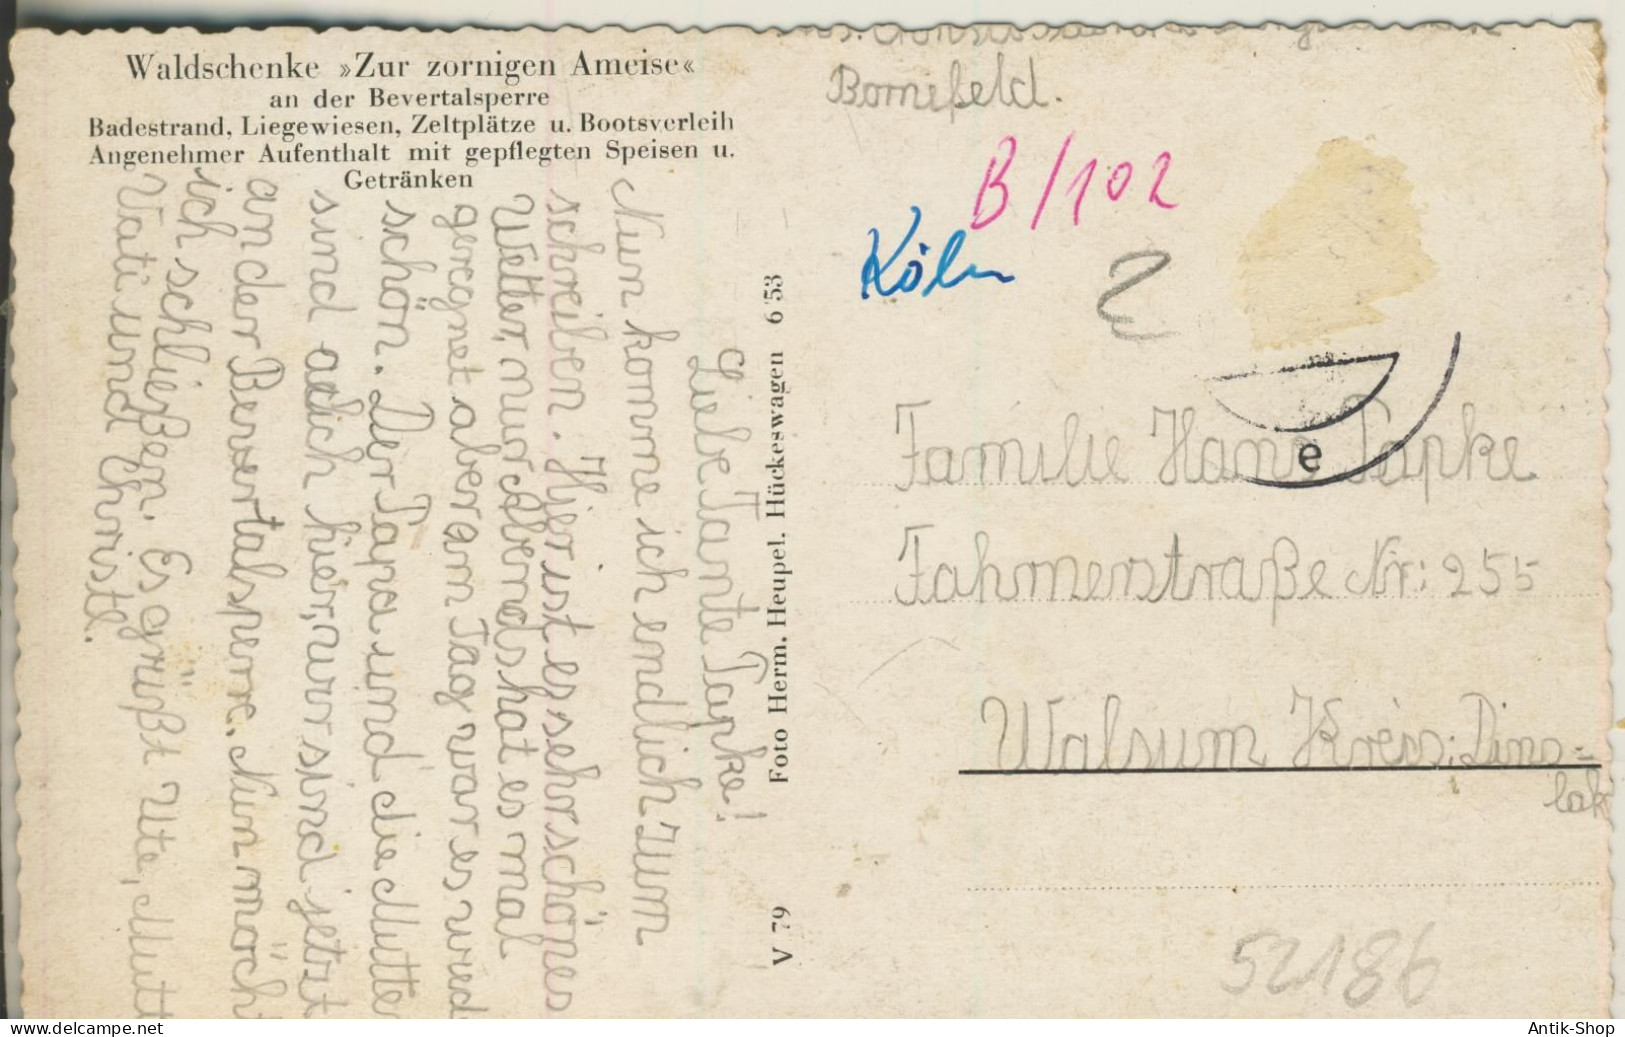 Waldschenke »Zur zornigen Ameise«
an der Bevertalsperre
Badestrand, Liegewiesen, Zeltplätze u. Bootsverleih
Angenehmer Aufenthalt mit gepflegten Speisen u.
Getränken
Liebe Tante Papke!
Nun komme ich endlich zum
schreiben. Hier ist es sehr schönes
Wetter, nur Abends hat es mal
geregnet aber am Tag war es wied
schön. Der Papa und die Mutte
sind auch hier, wir sind jetzt
an der Bevertalsperre. Nun möcht
ich schließen. Es grüßt Ute, Mutt
Vati und Christl.
Foto Herm. Heupel. Hückeswagen 6 53
V 79
Bornefeld.
B/102
Köln
2
e
Familie Hans Papke
Fahrnerstraße Nr: 255
Walsum Kreis: Dins=
lak
52186
www.delcampe.net
Antik-Shop